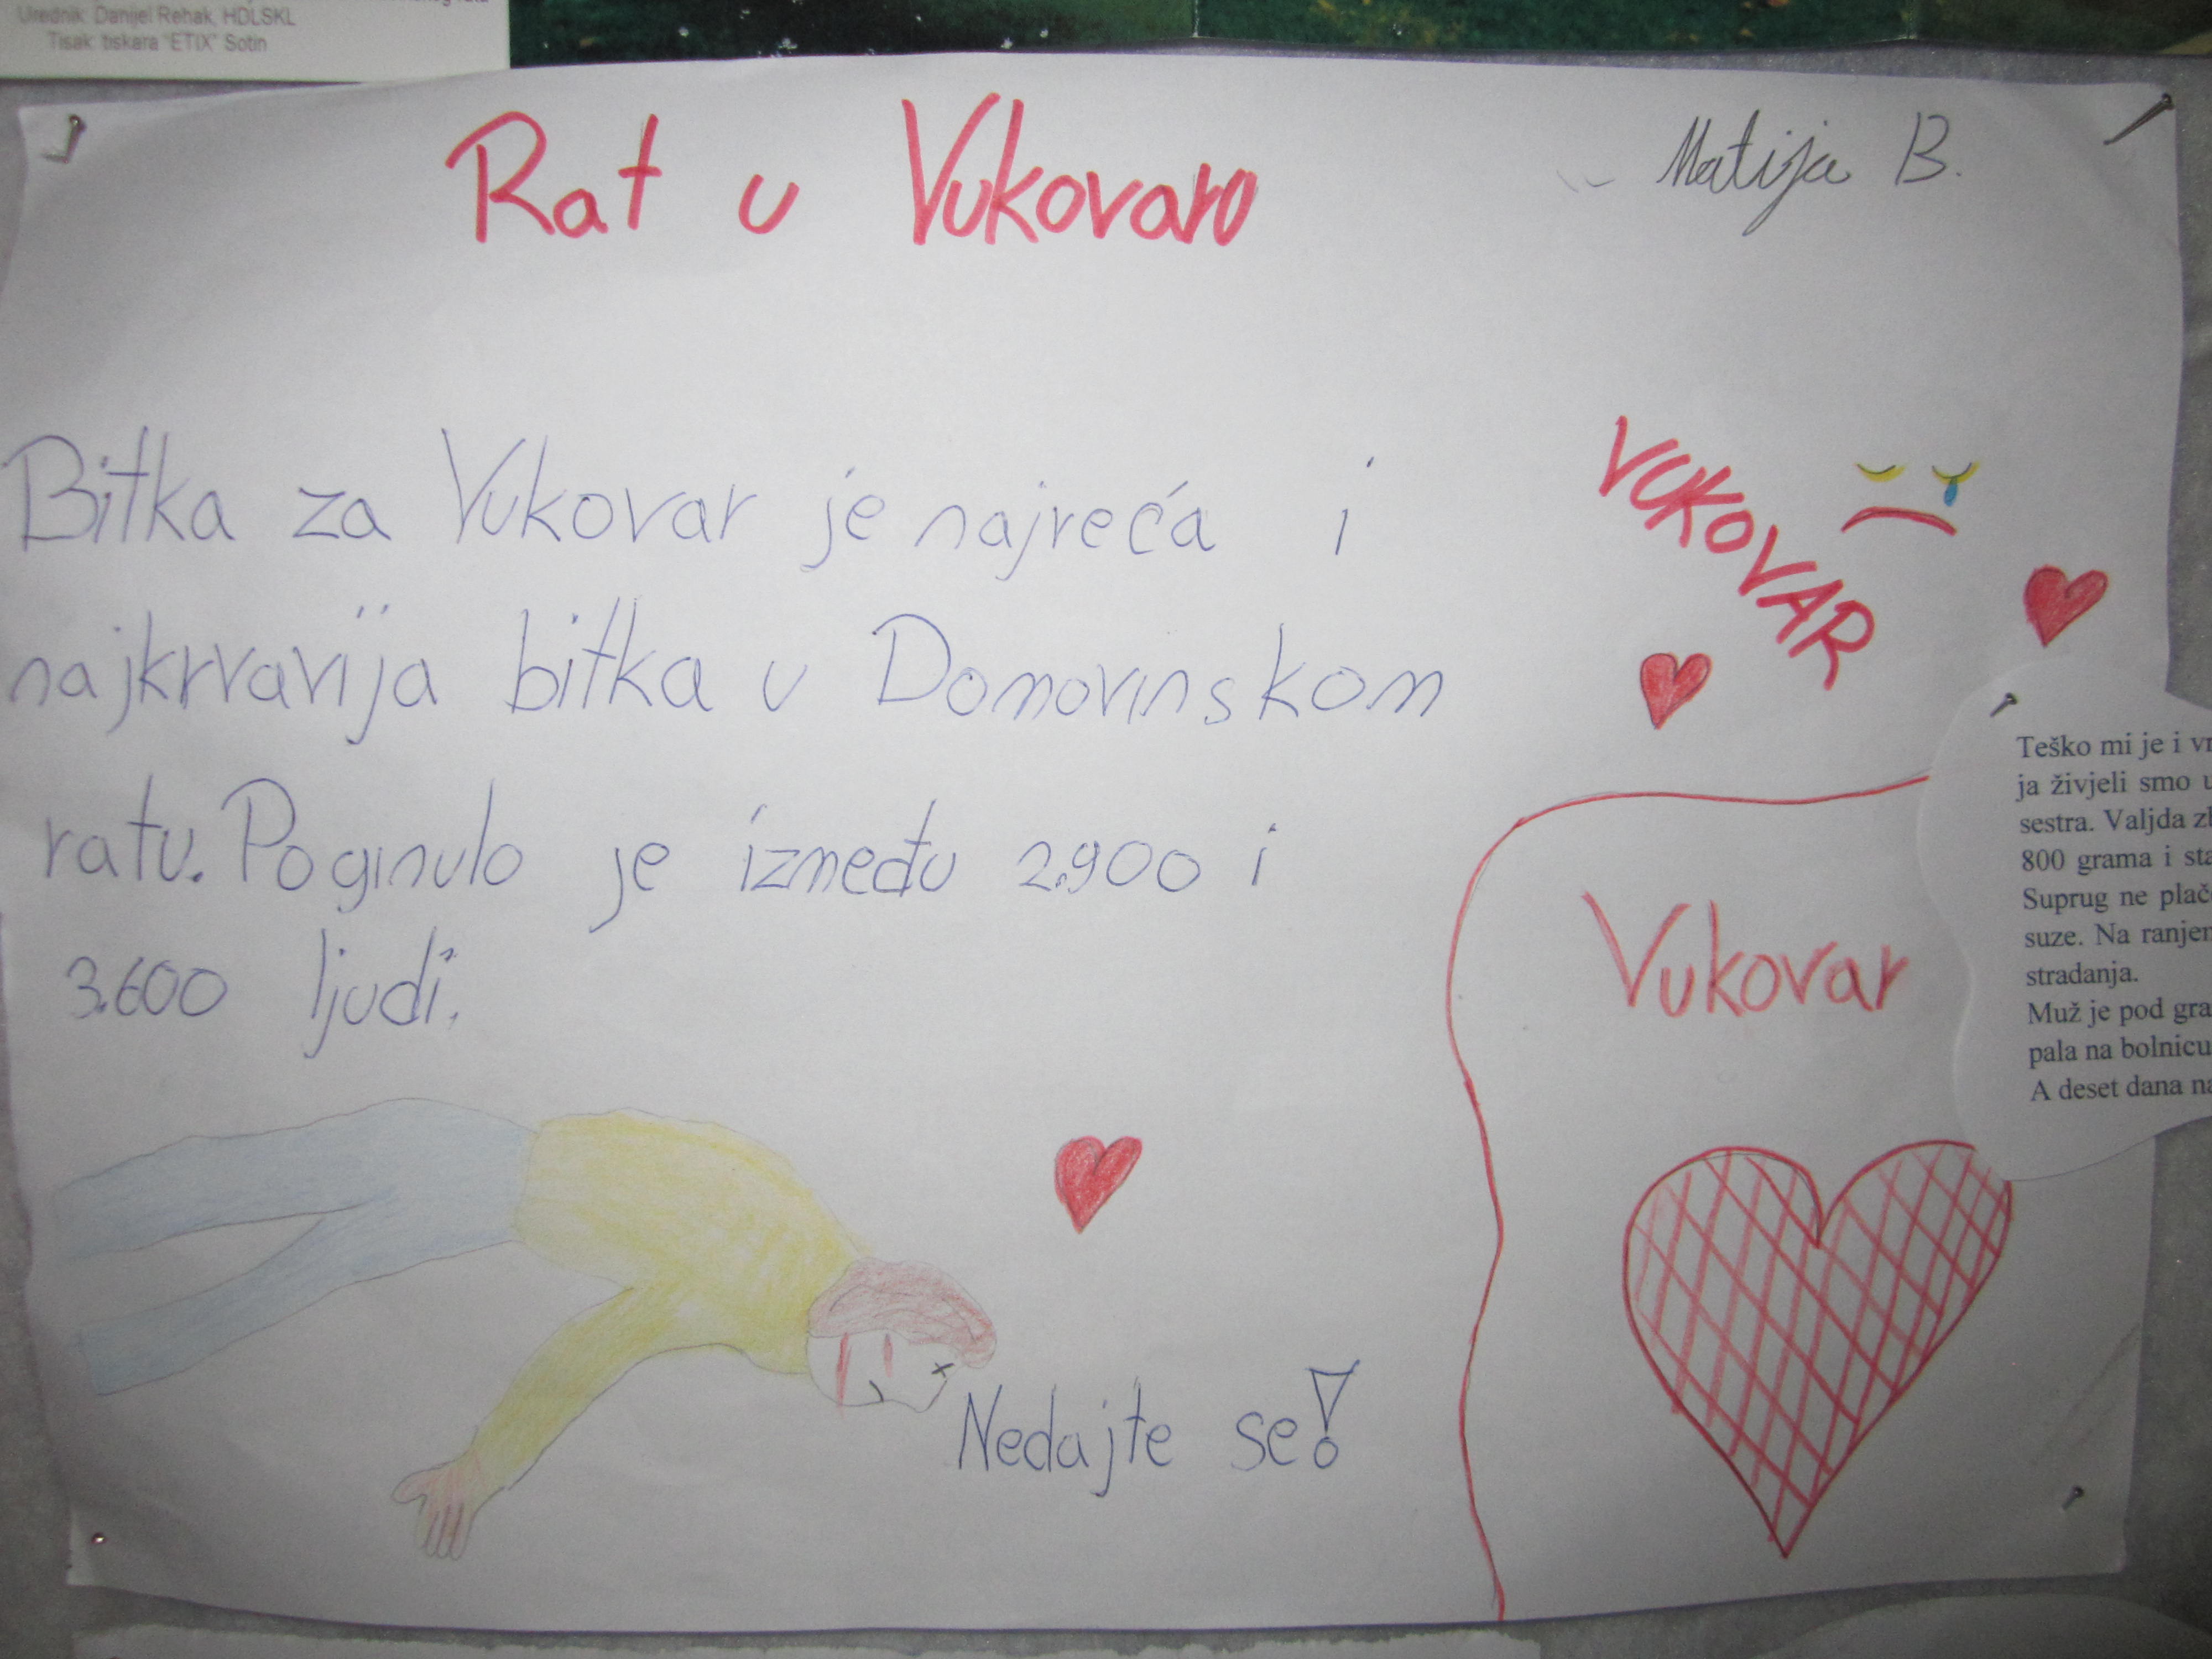 Urednik: Danijel Rehak, HDLSKL
Tisak: tiskara "ETIX" Sotin
Rat u Vukovaru
Matija B.
Bitka za Vukovar je najveća i
najkrvavija bitka u Domovinskom
ratu. Poginulo je između 2.900 i
3.600 ljudi.
VUKOVAR
Vukovar
Nedajte se!
Teško mi je i
ja živjeli smo
sestra. Valjda
800 grama i
Suprug ne
suze. Na
stradanja.
Muž je pod
pala na bolnicu
A deset dana